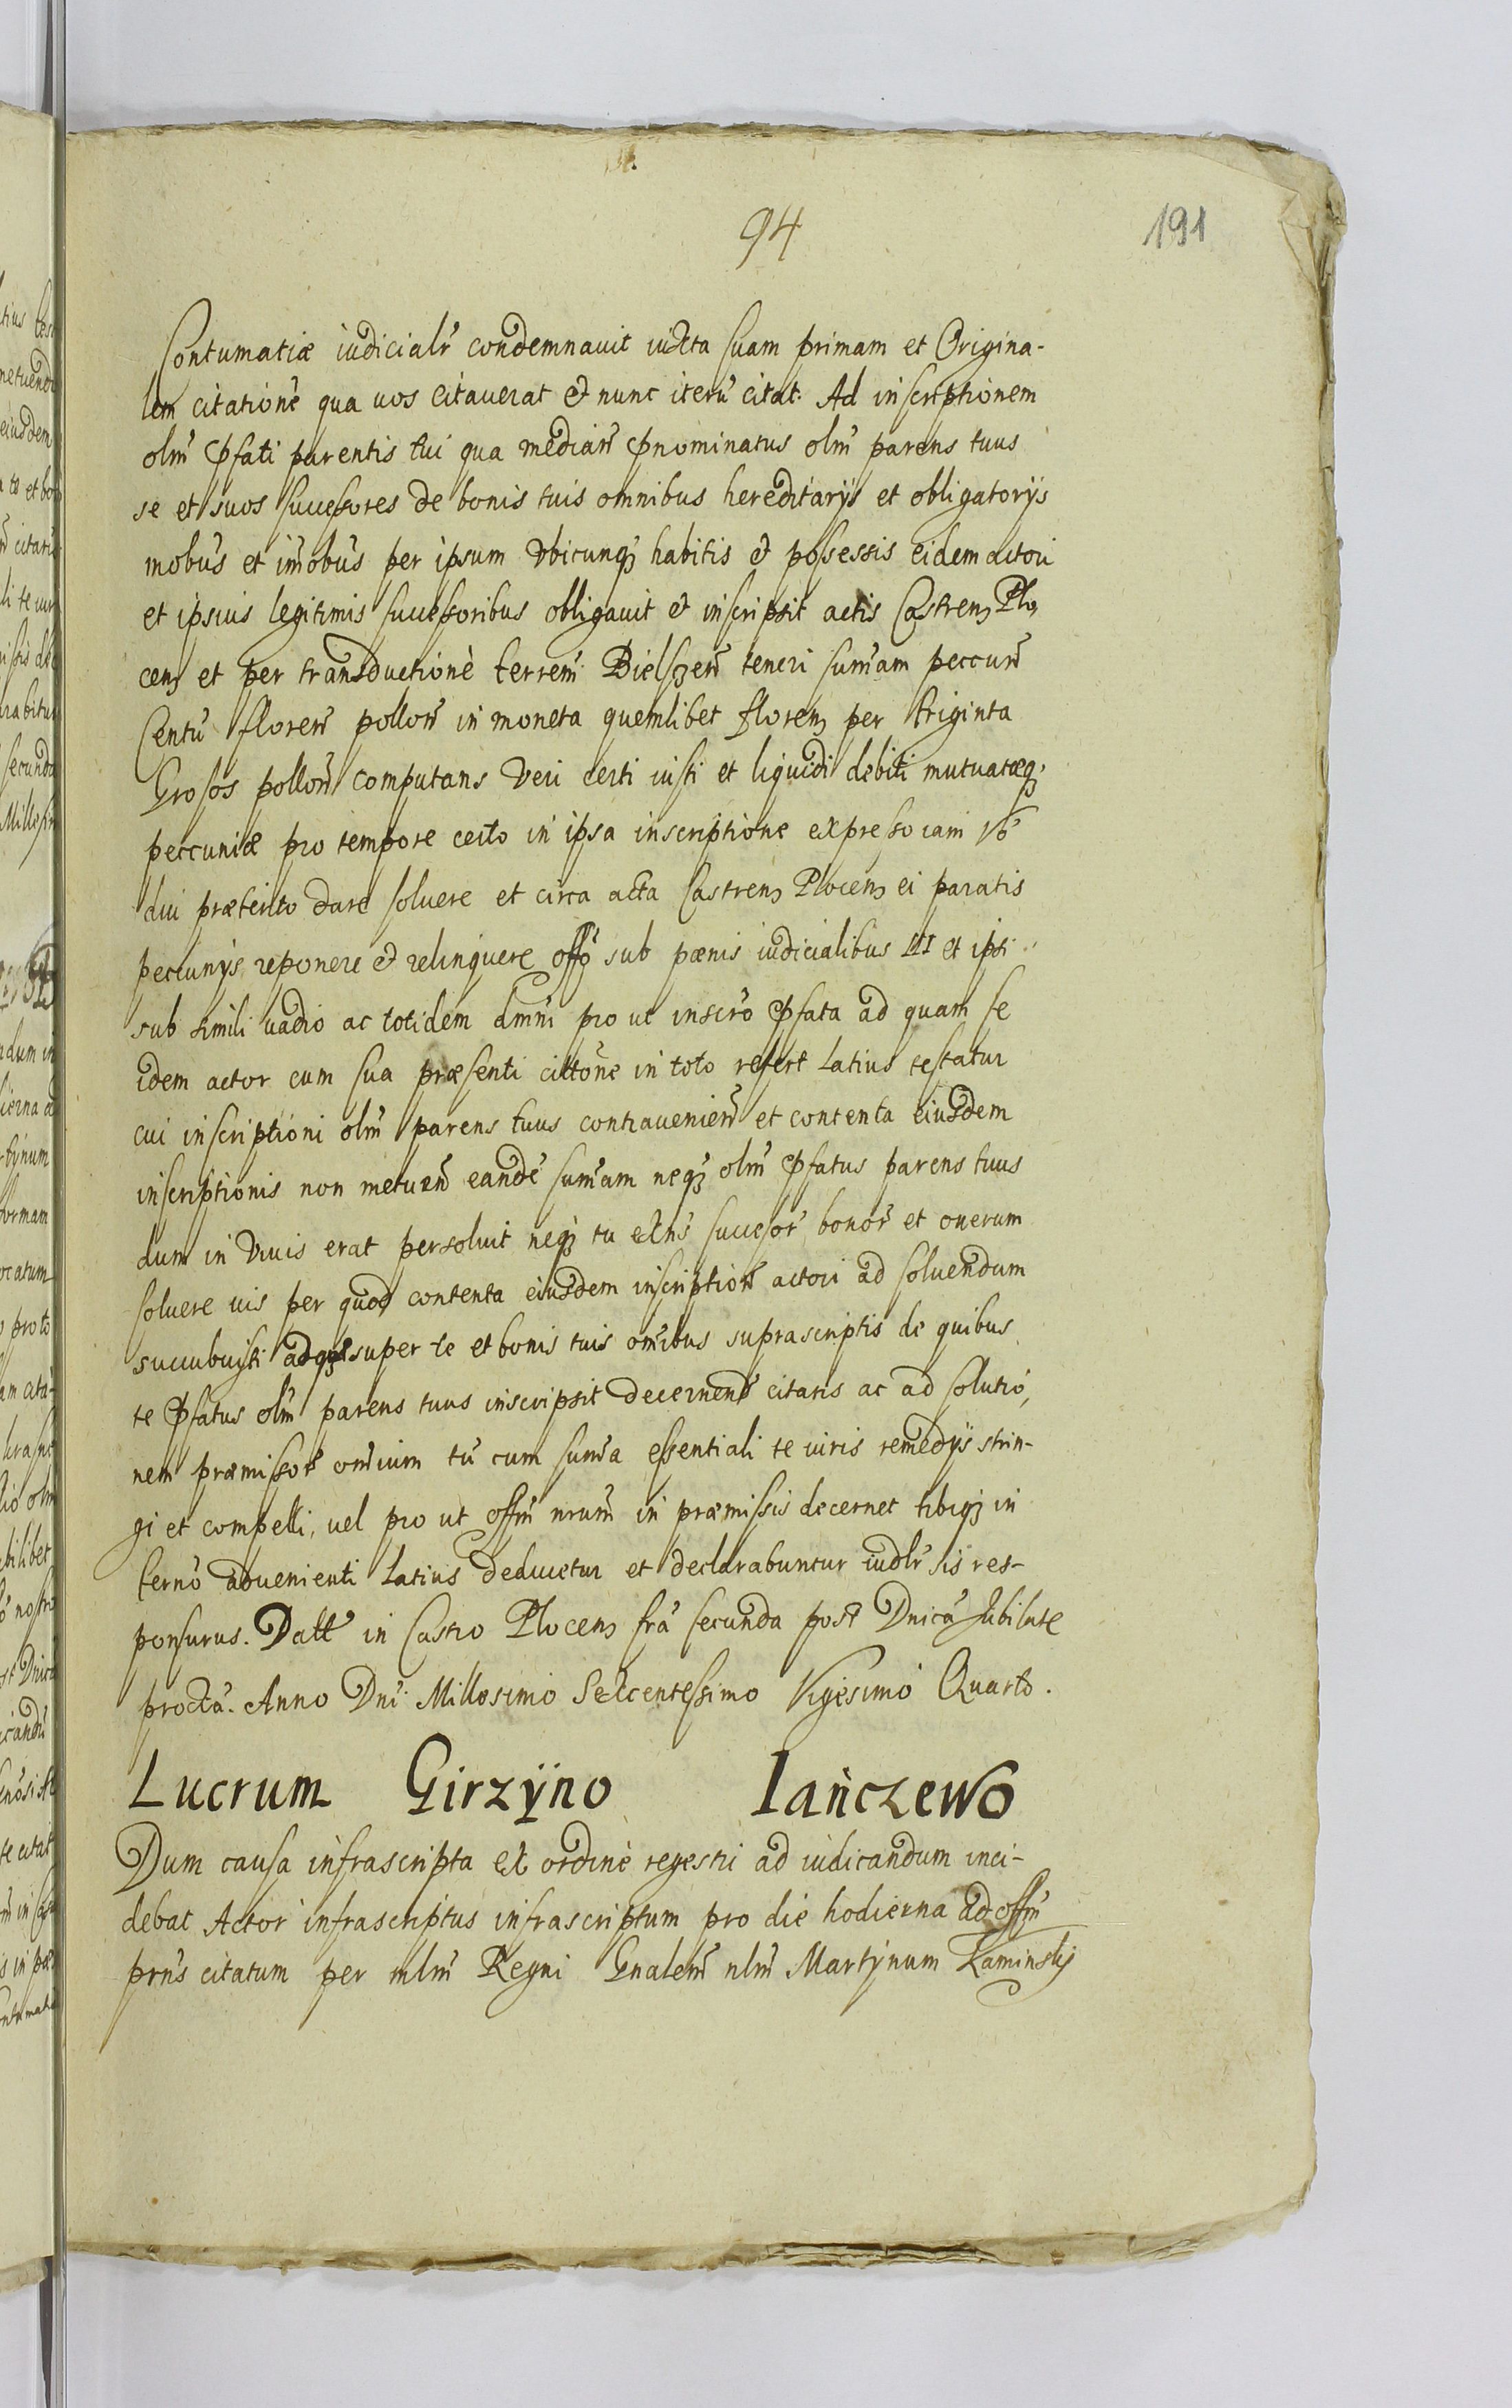 94
191
Contumatiæ iudicialr̃ condemnauit iuxta suam primam et Origina-
lem citationẽ qua uos citauerat et nunc iterũ citat. Ad inscriptionem
olim̃ pfati parentis tui qua median̄ pnominatus olim̃ parens tuus
se et suos successores de bonis tuis omnibus hereditarÿs et obligatorÿs
mobus̃ et im̃obus̃ per ipsum vbicunqȝ habitis et possessis eidem actori
et ipsius legitimis successoribus obligauit et inscripsit actis Castrenȝ Plo,
cenȝ et per transductionẽ terren̄ Bielscen̄ teneri sum̃am peccun̄
Centũ floren̄ pollon̄ in moneta quemlibet florenȝ per triginta
Grosos pollon̄ computans Veri certi iusti et liquidi debiti mutuatæqȝ
peccuniæ pro tempore certo in ipsa inscriptione expresso iam ab
diu præterito dare soluere et circa acta Castrenȝ Plocenȝ ei paratis
peccunÿs reponere et relinquere offõ sub pœnis iudicialibus III et ipsi
sub simili uadio ac totidem dm̃ni pro ut inscrõ pfata ad quam se
idem actor cum sua præsenti cittõne in toto refert Latius testatur
cui inscriptioni olim̃ parens tuus contrauenien̄ et contenta eiusdem
inscriptionis non metuen̄ eandẽ sum̃am neqȝ olim̃ pfatus parens tuus
dum in Viuis erat persoluit neqȝ tu exn̄s successor bonor̃ et onerum
soluere uis per quod contenta eiusdem inscription̄ actori ad soluendum
succubuisti adqȝ super te et bonis tuis om̃ibus suprascriptis de quibus
te pfatus olim̃ parens tuus inscripsit decernend̃ citaris ac ad solutio,
nem præmissor̃ om̃ium tũ cum sum̃a essentiali te uiris remedÿs strin-
gi et compelli, uel pro ut offm̃ nrum̃ in præmissis decernet tibiqȝ in
ternõ aduenienti Latius deducetur et declarabuntur iudlr̃ sis res-
ponsurus. Datt̃ in Castro Plocenȝ frã secunda post Dnicã Jubilate
proxã. Anno Dni̅. Millesimo Sexcentessimo Vigesimo Quarto.
Lucrum Girzÿno Iańczewo
Dum causa infrascripta ex ordinè regestri ad iudicandum inci-
debat Actor infrascriptus infrascriptum pro die hodierna ad offm̃
prns̃ citatum per mlm̃ Regni Gnalem̃ nlm̃ Martÿnum Kaminskÿ